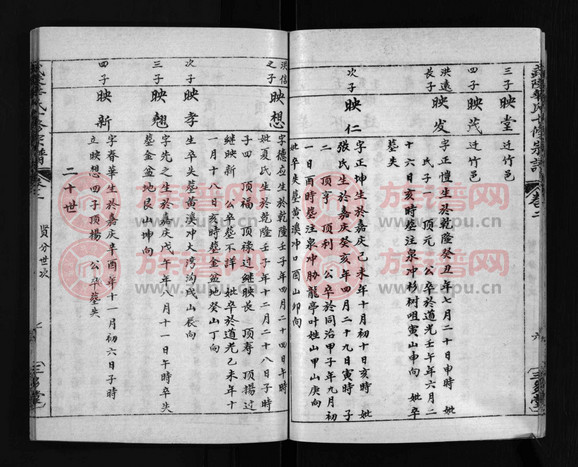 三子 映堂 迁竹邑
映茂 迁竹邑
洪遠長子 映发
字正愷生於乾隆癸丑年七月二十日申時 妣
氏 子一 頂元 公卒於道光壬午年六月二
十六日亥時塟注泉冲杉树咀寅山申向 妣卒
塟失
次子 映仁
字正坤生於嘉庆己未年十月初十日亥時 妣
張氏生於嘉庆癸亥年四月二十九日寅時 子
頂亨 頂利 公卒於同治甲子年九月初
一日酉時塟注泉冲胁龍亭叶姓山甲山庚向
妣卒失塟黄溪冲口酉山卯向
洪信之子 映想
字德应生於乾隆壬子年四月二十四日午時
妣夏氏生於乾隆壬子年十二月二十八日子時
子四 頂福 頂禄过継映長 頂奪 頂揚过
継映新 公卒塟不詳 妣卒於道光己未年十
一月十八日亥時塟金盆地癸山丁向
次子 映孝
生卒失塟黄溪冲大湾沟戌山辰向
三子 映翘
字先之生於嘉庆戊午年八月十一日午時卒失
塟金盆地艮山坤向
四子 映新
字春華生於嘉庆辛酉年十一月初六日子時
立映想四子頂揚 公卒塟失
二十世
贤分世次
卷二
三多堂
族谱网
www.zupu.cn